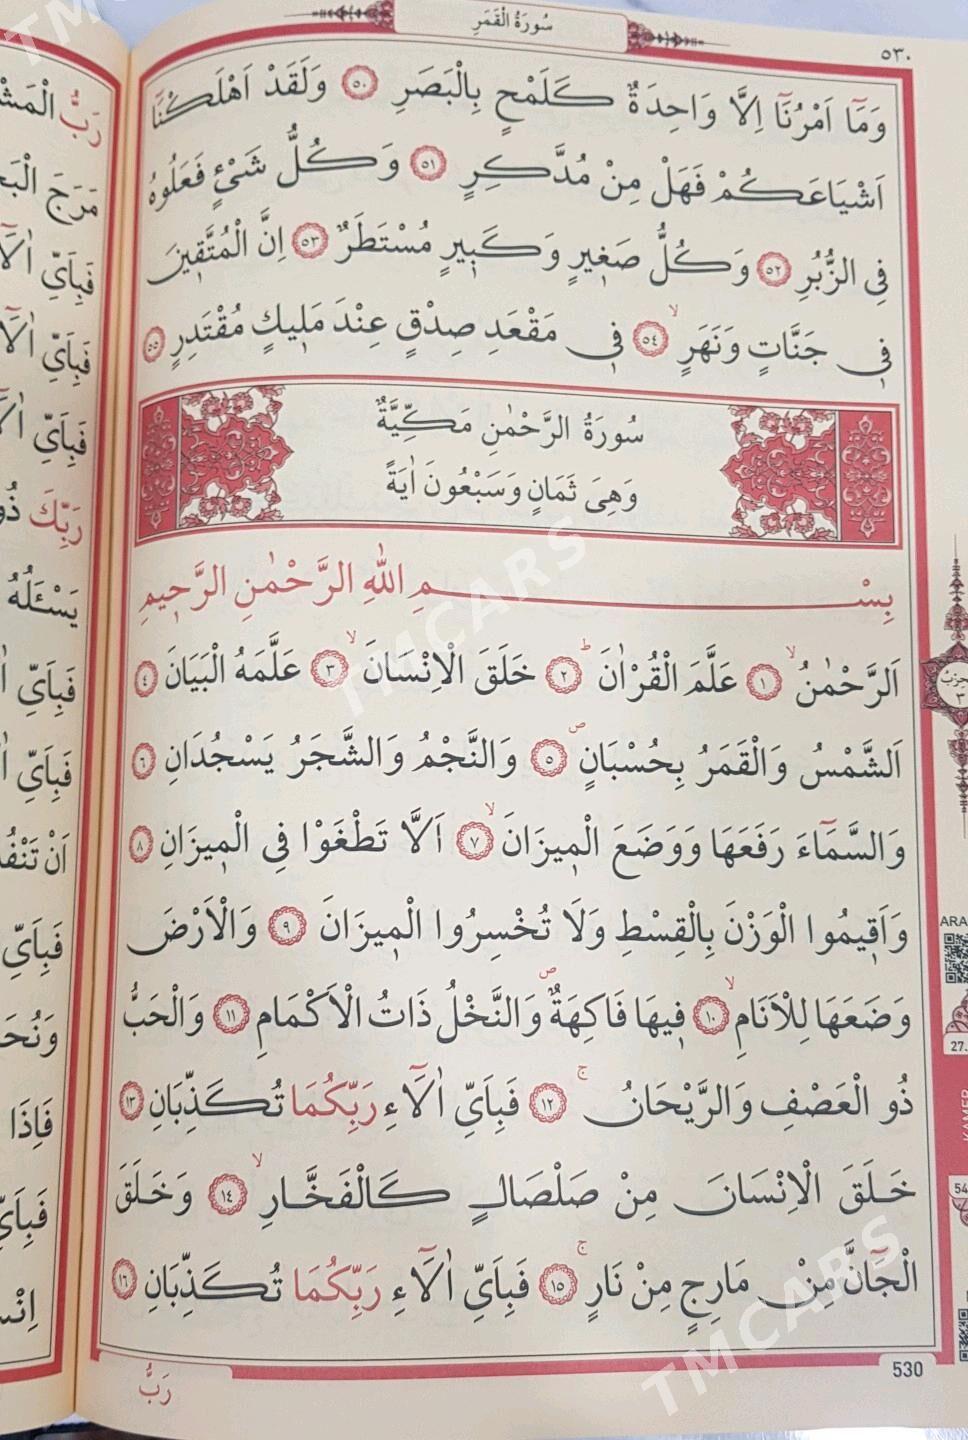 سُورَةُ الْقَمَرِ
٥٣٠
وَمَٓا اَمْرُنَٓا اِلَّا وَاحِدَةٌ كَلَمْحٍ بِالْبَصَرِ ٥٠ وَلَقَدْ اَهْلَكْنَٓا
اَشْيَاعَكُمْ فَهَلْ مِنْ مُدَّكِرٍ ٥١ وَكُلُّ شَيْءٍ فَعَلُوهُ
فِي الزُّبُرِ ٥٢ وَكُلُّ صَغِيرٍ وَكَبِيرٍ مُسْتَطَرٌ ٥٣ اِنَّ الْمُتَّقِينَ
فِي جَنَّاتٍ وَنَهَرٍ ٥٤ فِي مَقْعَدِ صِدْقٍ عِنْدَ مَلِيكٍ مُقْتَدِرٍ ٥٥
سُورَةُ الرَّحْمٰنِ مَكِّيَّةٌ
وَهِيَ ثَمَانٍ وَسَبْعُونَ اٰيَةً
بِسْمِ اللّٰهِ الرَّحْمٰنِ الرَّحِيمِ
اَلرَّحْمٰنُ ١ عَلَّمَ الْقُرْاٰنَ ٢ خَلَقَ الْاِنْسَانَ ٣ عَلَّمَهُ الْبَيَانَ ٤
اَلشَّمْسُ وَالْقَمَرُ بِحُسْبَانٍ ٥ وَالنَّجْمُ وَالشَّجَرُ يَسْجُدَانِ ٦
وَالسَّمَٓاءَ رَفَعَهَا وَوَضَعَ الْمِيزَانَ ٧ اَلَّا تَطْغَوْا فِي الْمِيزَانِ ٨
وَاَقِيمُوا الْوَزْنَ بِالْقِسْطِ وَلَا تُخْسِرُوا الْمِيزَانَ ٩ وَالْاَرْضَ
وَضَعَهَا لِلْاَنَامِ ١٠ فِيهَا فَاكِهَةٌ وَالنَّخْلُ ذَاتُ الْاَكْمَامِ ١١ وَالْحَبُّ
ذُو الْعَصْفِ وَالرَّيْحَانُ ١٢ فَبِاَيِّ اٰلَٓاءِ رَبِّكُمَا تُكَذِّبَانِ ١٣
خَلَقَ الْاِنْسَانَ مِنْ صَلْصَالٍ كَالْفَخَّارِ ١٤ وَخَلَقَ
الْجَٓانَّ مِنْ مَارِجٍ مِنْ نَارٍ ١٥ فَبِاَيِّ اٰلَٓاءِ رَبِّكُمَا تُكَذِّبَانِ ١٦
530
رَبُّ
رَبُّ
مَرَجَ
فَبِاَيِّ
فَبِاَيِّ
فَبِاَيِّ
رَبِّكَ
يَسْـَٔلُهُ
فَبِاَيِّ
فَبِاَيِّ
فَبِاَيِّ
فَاِذَا
حِزْبُ
٣
27.
54
TMCARS
TMCARS